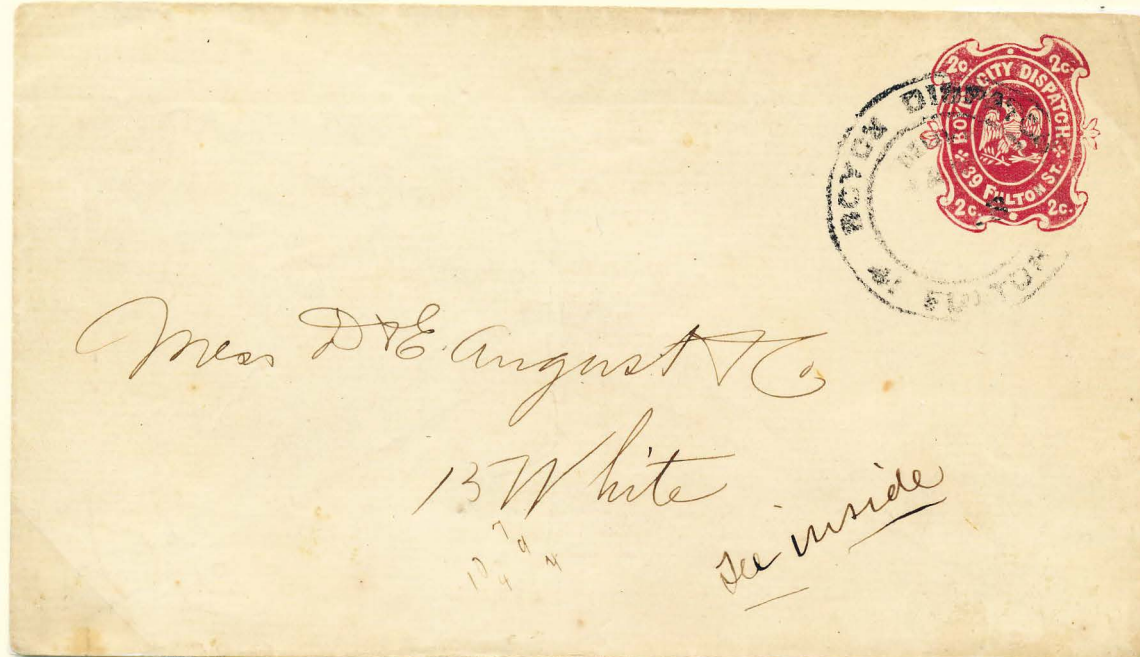 2c. 2c.
BOYD'S CITY DISPATCH
39 FULTON ST.
2c. 2c.
BOYDS DISPATCH
FULTON
Mess D & E. August & Co
13 White
See inside